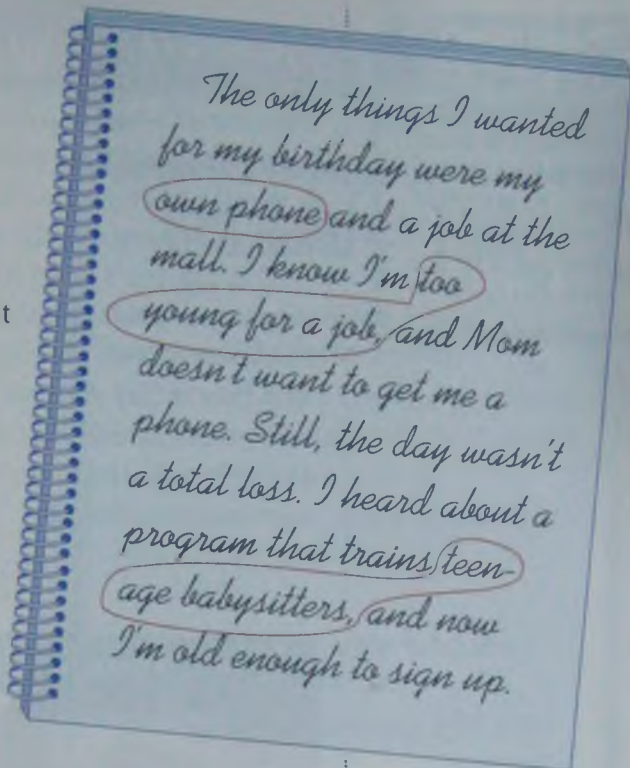 The only things I wanted
for my birthday were my
own phone and a job at the
mall. I know I'm too
young for a job, and Mom
doesn't want to get me a
phone. Still, the day wasn't
a total loss. I heard about a
program that trains teen-
age babysitters, and now
I'm old enough to sign up.
t